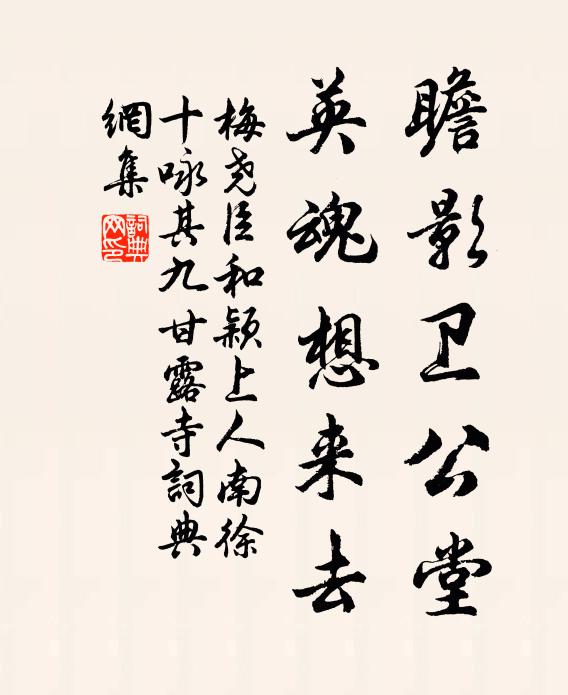 瞻影卫公堂
英魂想来去
梅尧臣和颖上人南徐
十咏其九甘露寺詞典
網集
詞典
网印